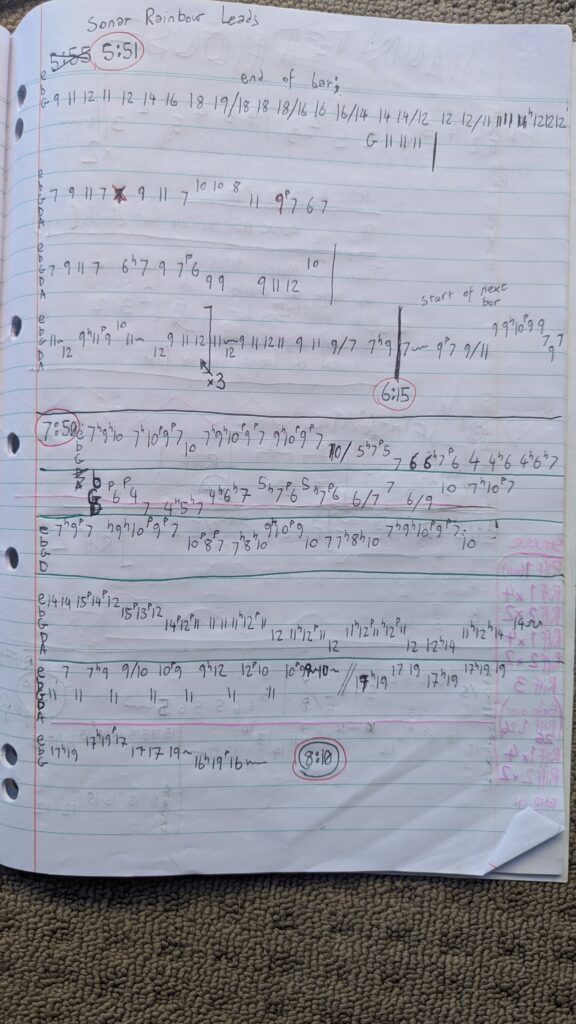 Sonar Rainbour Leads
5:55 5:51
end of bar;
e
b
G 9 11 12 11 12 14 16 18 19/18 18 18/16 16 16/14 14 14/12 12 12/11 11 11 12 12 12
G 11 11 11
e
b
G 7 9 11 7 9 11 7 10 10 8 11 9p7 6 7
D
A
e
b
G 7 9 11 7 6h7 9 7p6 9 9 9 11 12 10
D
A
start of next bar
e
b
G 11~ 12 9h11p9 10 11~ 12 9 11 12 11~ 12 9 11 12 11 9 11 9/7 7h9 7~ 9p7 9/11 9 9h10p9 9 7 9 7
D
A
x3
6:15
7:50
e 7h9h10 7h10p9p7 10 7h9h10p9p7 9h10p9p7 10/ 5h7p5 7 6 6h7p6 4 4h6 4h6h7
b
G
D
A
b 6p4p 7 4h5h7 4h6h7 5h7p6 5h7p6 6/7 7 6/9 10 7h10p7
G
D
e 7h9p7 7h9h10p9p7 10p8p7 7h8h10 9h10p9 10 7 7h8h10 7h9h10p9p7 10
b
G
D
e 14 14 15p14p12 15p13p12 14p12p11 11 11 11h12p11 12 11h12p11 12 11h12p11h12p11 12 12h14 11h12h14 14~
b
G
D
A
e 7 7h9 9/10 10p9 9h12 12p10 10p9 // 17h19 17 19 17h19 17h19 19
b 11 11 11 11 11 11
G
D
A
e
b 17h19 17h19p17 17 17 19~ 16h19p16~
G
8:10